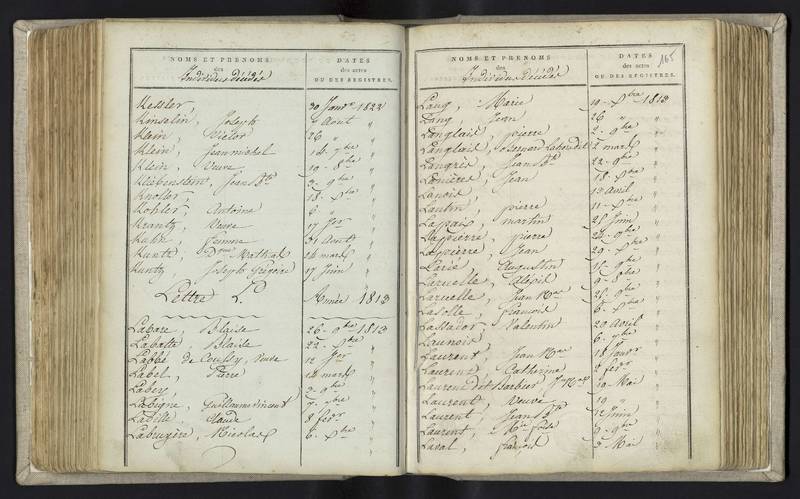 NOMS ET PRENOMS
des
Individus décédés
DATES
des actes
OU DES REGISTRES.
Kessler, 30 Janr. 1822
Kinselin, Joseph 2 Aout "
Klein, Victor 26 " "
Klein, Jean michel 14 7bre "
Klein, Veuve 19 8bre "
Kliebenstein, Jean Bte 3 9bre "
Knoller, 18 Xbre "
Kohler, Antoine 6 "
Krantz, Veuve 17 fer "
Kuhn, femme 31 Aout "
Kuntz, 14 mars "
Kuntz, Joseph Grégoire 17 Juin "
Lettre L. Année 1813
Labare, Blaise 26 9bre 1813
Labatte, Blaise 22 Xbre "
Labbé de Coussy, Veuve 12 fer "
Label, Pierre 14 mars "
Labey, 3 9bre "
Labigne, Guillaume Vincent 7 Xbre "
Labille, Claude 8 fer "
Labruyère, Nicolas 6 Xbre "
NOMS ET PRENOMS
des
Individus décédés
DATES
des actes
OU DES REGISTRES.
165
Lang, Marie 19 Xbre 1813
Lang, Jean 26 " "
Langlais, pierre 2 9bre "
Langlais, Bernard 2 mars "
Langrés, Jean Bte 22 9bre "
Lanières, Jean 18 Xbre "
Lanois, 13 Avril "
Lantin, pierre 11 Xbre "
Lapaix, martin 21 Juin "
Lapierre, pierre 24 9bre "
Lapierre, Jean 29 Xbre "
Larié, Augustin 9bre "
Laruelle, Alexis 9 8bre "
Laruelle, Jean Nas 21 9bre "
Lasolle, françois 6 Xbre "
Lassador, Valentin 20 Avril "
Launois, 6 "
Laurent, Jean Nas 18 Janr. "
Laurent, Catherine 2 fer "
Laurent dit Barbier, 19 Mai "
Laurent, Veuve 19 " "
Laurent, Jean Bte Juin "
Laurent, 6 9bre "
Laval, françois 5 Mai "